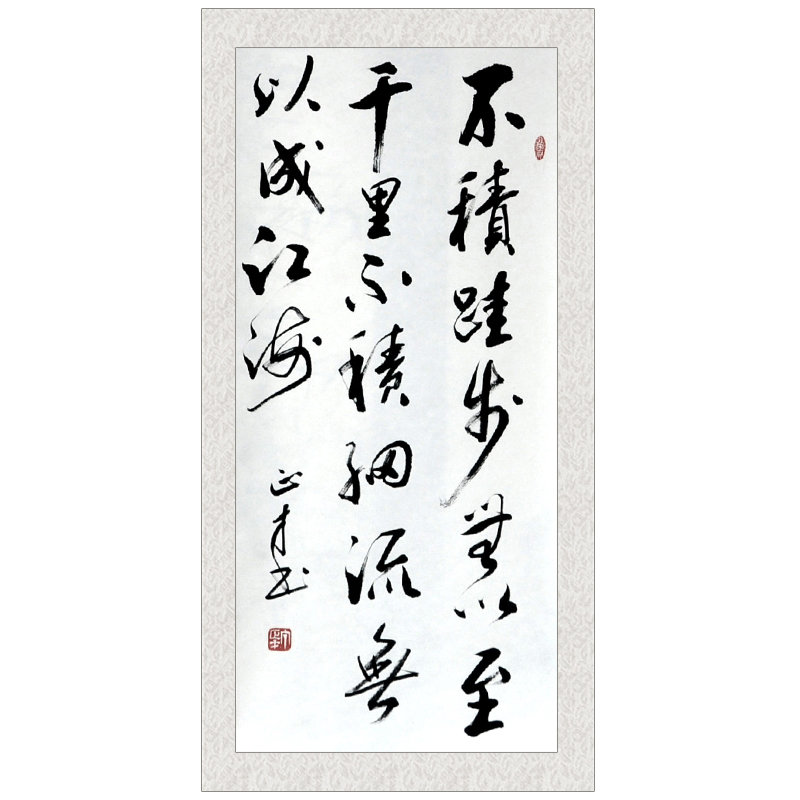 不積跬步無以至
千里不積細流無
以成江海
正才书